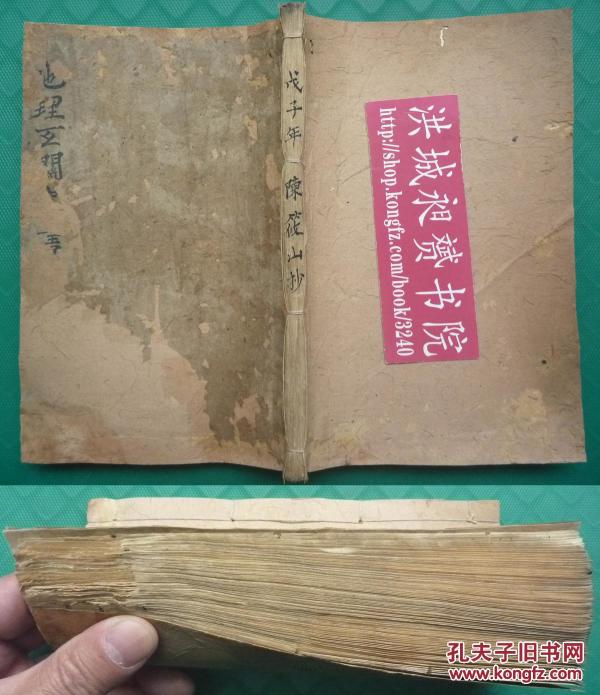 地理玄關
戊子年 陳筱山抄
洪城昶赟书院
http://shop.kongfz.com/book/3240
孔夫子旧书网
www.kongfz.com